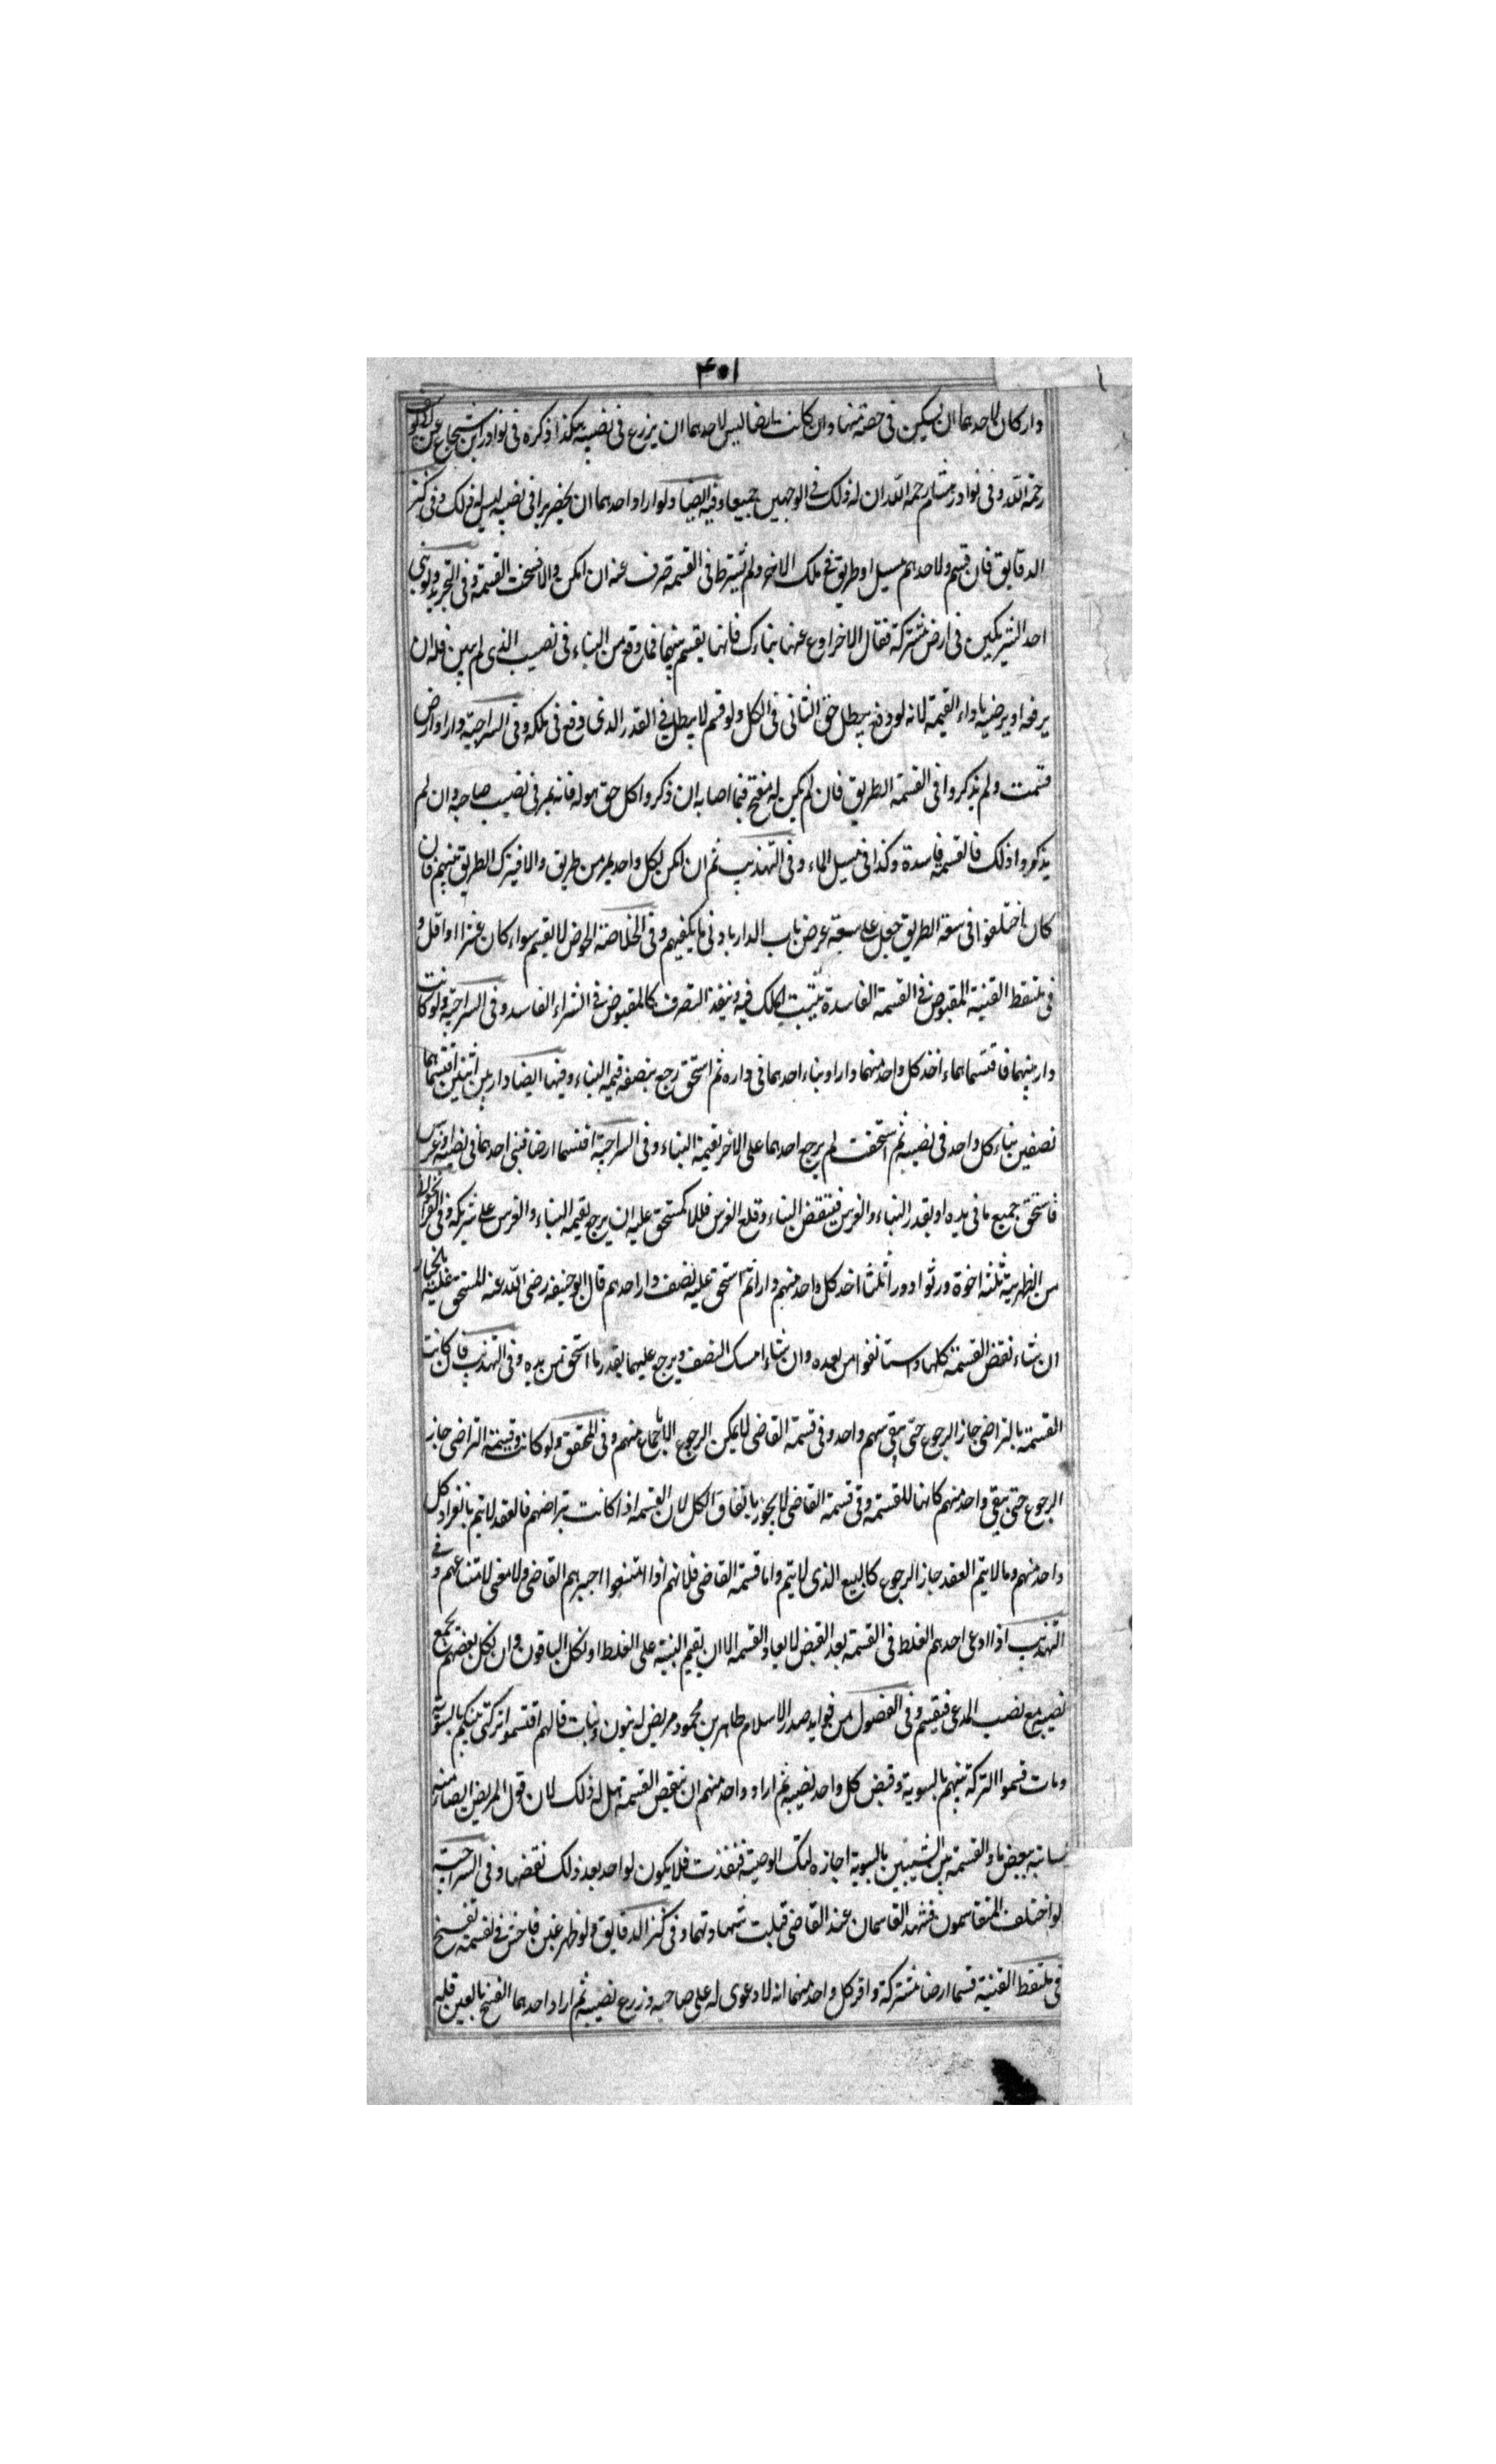 ۴۰۱
دار كان لاحدهما ان يسكن فى حصة منها وان كانت ارضا ليس لاحدهما ان يزرع فى نصيبه هكذا ذكره فى نوادر ابن شجاع عن ابى يوسف
رحمة الله وفى نوادر هشام رحمه الله ان له ذلك فى الوجهين جميعا وفيه ايضا ولو اراد احدهما ان يحفر بيرا فى نصيبه ليس له ذلك وفى كنز
الدقايق فان قسم ولاحدهم مسيل او طريق فى ملك الاخر ولم يشترط فى القسمة صرف عنه ان امكن والا فسخت القسمة وفى التجريد ولو بنى
احد الشريكين فى ارض مشتركة فقال الاخر ارفع عنها بناءك فانها يقسم بينهما فما وقع من البناء فى نصيب الذى لم يبن فله ان
يرفعه او يرضيه باداء القيمة لانه لو رفع يبطل حق الثانى فى الكل ولو قسم لا يبطل فى القدر الذى وقع فى ملكه وفى السراجية دار او ارض
قسمت ولم يذكروا فى القسمة الطريق فان لم يكن له مفتح فيما اصابه ان ذكروا كل حق هو له فانه يمر فى نصيب صاحبه وان لم
يذكروا ذلك فالقسمة فاسدة وكذا فى مسيل الماء وفى التهذيب ثم ان امكن لكل واحد يمر من طريق والا فيترك الطريق بينهم فان
كان اختلفوا فى سعة الطريق جعل على سعة عرض باب الدار بادنى ما يكفيهم وفى الخلاصة الحوض لا يقسم سواء كان عشرا او اقل و
فى ملتقط القنية المقبوض فى القسمة الفاسدة يثبت الملك فيه وينفذ التصرف كالمقبوض فى الشراء الفاسد وفى السراجية ولو كانت
دار بينهما فاقتسماهما اخذ كل واحد منهما دارا وبناء احدهما فى داره ثم استحق رجع بنصف قيمة البناء وفيها ايضا دار بين اثنين اقتسماها
نصفين بناء كل واحد فى نصيبه ثم استحقت لم يرجع احدهما على الاخر بقيمة البناء وفى السراجية اقتسما ارضا فبنى احدهما فى نصيبه او غرس
فاستحق جميع ما فى يده او بقدر البناء والغرس فينقض البناء وقلع الغرس فللمستحق عليه ان يرجع بقيمة البناء والغرس على شريكه وفى
من الظهيرية ثلثة اخوة ورثوا دورا ثلثا اخذ كل واحد منهم دارا ثم استحق عليه نصف دار احدهم قال ابو حنيفه رضى الله عنه للمستحق عليه بالخيار
ان شاء نقض القسمة كلها واستانفوا من بعده وان شاء امسك النصف ويرجع عليهما بقدر ما استحق من يده وفى التهذيب فان كانت
القسمة بالتراضى جاز الرجوع حتى يبقى سهم واحد وفى قسمة القاضى لا يمكن الرجوع الا باجماع منهم وفى المحقق ولو كانت قسمة التراضى جاز
الرجوع حتى يبقى واحد منهم كانها للقسمة وفى قسمة القاضى لا يجوز باتفاق الكل لان القسمة اذا كانت بتراضيهم فالعقد لا يتم بانفراد كل
واحد منهم وما لا يتم العقد جاز الرجوع كالبيع الذى لا يتم واما قسمة القاضى فلانهم اذا امتنعوا اجبرهم القاضى ولا معنى لامتناعهم وفى
التهذيب اذا ادعى احدهم الغلط فى القسمة بعد القبض لا يعاد القسمة الا ان يقيم البينة على الغلط او نكل الباقون وان نكل بعضهم يجمع
نصيبه مع نصيب المدعى فيقسم وفى الفصول من فوايد صدر الاسلام طاهر بن محمود مريض له بنون وبنات قال لهم اقتسموا تركتى بينكم بالسوية
ومات قسموا التركة بينهم بالسوية وقبض كل واحد نصيبه ثم اراد واحد منهم ان ينقض القسمة هل له ذلك لان قول المريض ايضا منه
القسمة بين البنين بالسوية اجازة لتلك الوصية فنفذت فلا يكون لواحد بعد ذلك نقضها وفى السراجية
لو اختلف المتقاسمون فشهد القاسمان عند القاضى قبلت شهادتهما وفى كنز الدقايق ولو ظهر غبن فاحش فى القسمة تفسخ
فى ملتقط القنية قسما ارضا مشتركة واقر كل واحد منهما انه لا دعوى له على صاحبه وزرع نصيبه ثم اراد احدهما الفسخ بالغبن فله